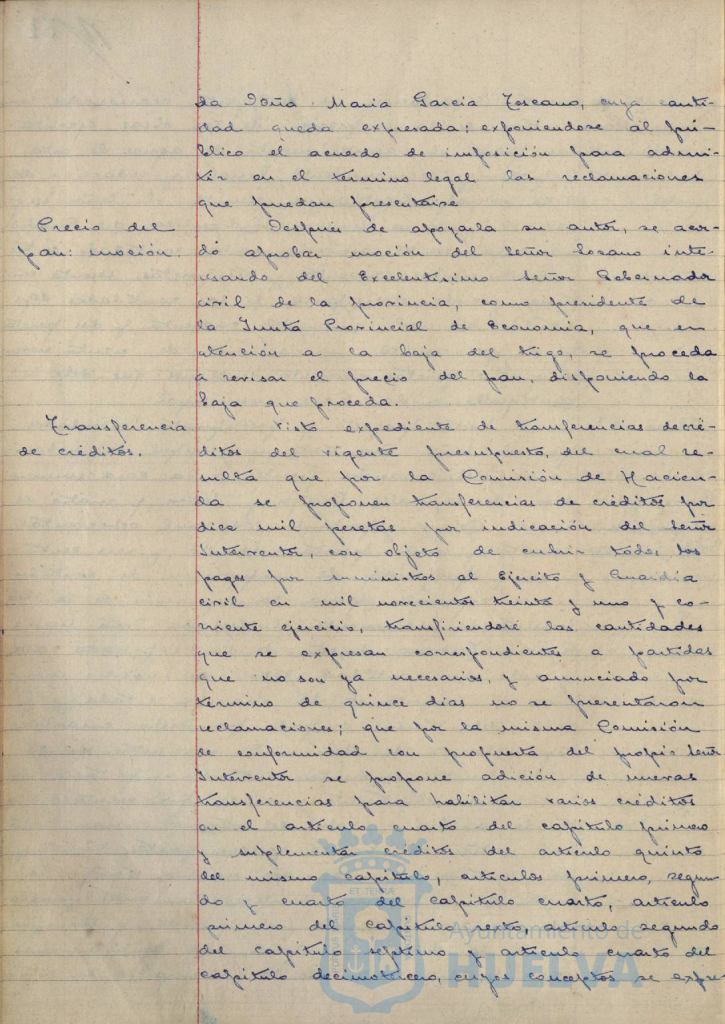 da Doña Maria Garcia Toscano, cuya canti-
dad queda expresada; exponiendose al pú-
blico el acuerdo de imposición para admi-
tir en el termino legal las reclamaciones
que puedan presentarse
Precio del
pan: moción.
Después de apoyarla su autor, se acor-
dó aprobar moción del Señor Lozano inte-
resando del Excelentisimo Señor Gobernador
civil de la provincia, como presidente de
la Junta Provincial de Economia, que en
atención a la baja del trigo, se proceda
a revisar el precio del pan, disponiendo la
baja que proceda.
Transferencia
de créditos.
Visto expediente de transferencias de cré-
ditos del vigente presupuesto, del cual re-
sulta que por la Comisión de Hacien-
da se proponen transferencias de créditos por
diez mil pesetas por indicación del Señor
Interventor, con objeto de cubrir todos los
pagos por suministros al Ejercito y Guardia
civil en mil novecientos treinta y uno y co-
rriente ejercicio, transfiriendose las cantidades
que se expresan correspondientes a partidas
que no son ya necesarias, y anunciado por
termino de quince dias no se presentaron
reclamaciones; que por la misma Comisión
de conformidad con propuesta del propio Señor
Interventor se propone adición de nuevas
transferencias para habilitar varios créditos
en el articulo cuarto del capitulo primero
y suplementar créditos del articulo quinto
del mismo capitulo, articulos primero, segun-
do y cuarto del capitulo cuarto, articulo
primero del capitulo sexto, articulo segundo
del capitulo septimo y articulo cuarto del
capitulo decimotercero, cuyos conceptos se expre-
Ayuntamiento de
HUELVA